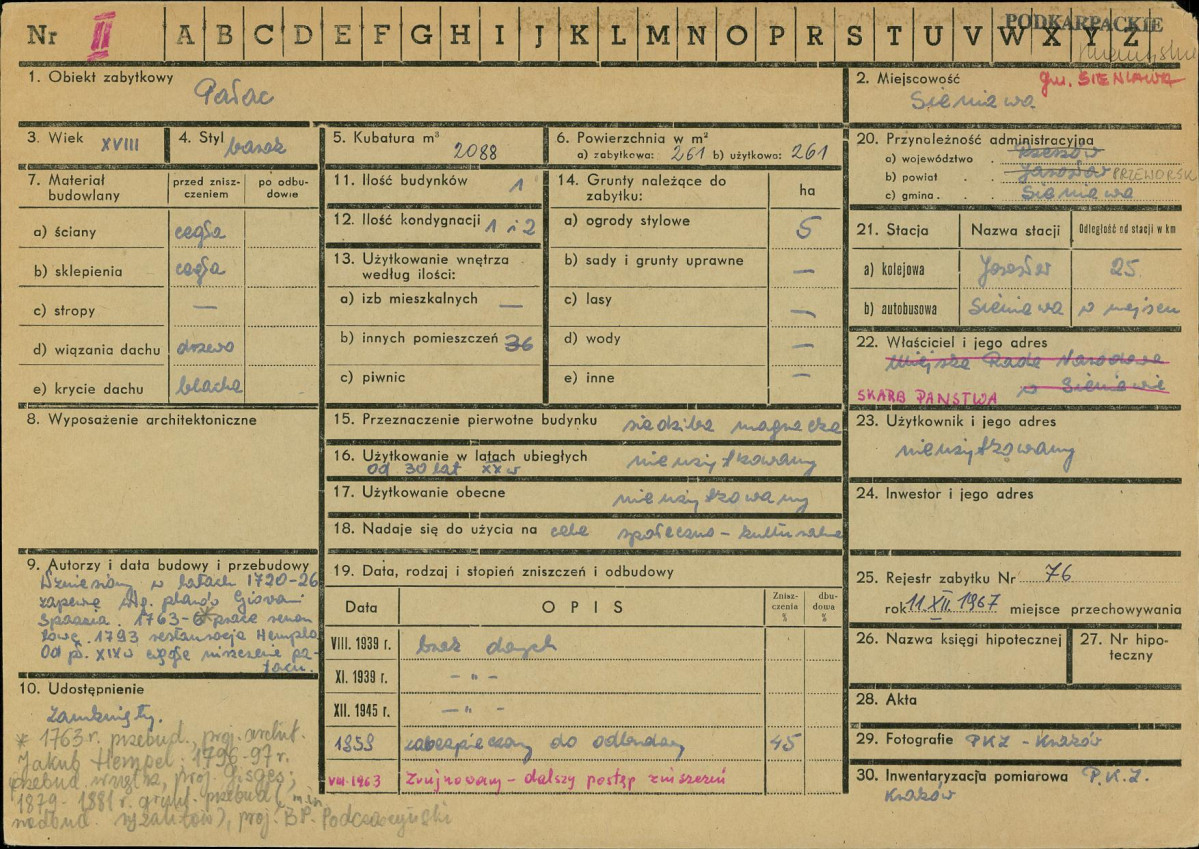 PODKARPACKIE
Nr II A B C D E F G H I J K L M N O P R S T U V W X Y Z
1. Obiekt zabytkowy
Pałac
2. Miejscowość
gm. SIENIAWA
Sieniawa
3. Wiek XVIII
4. Styl barok
5. Kubatura m³
2088
6. Powierzchnia w m²
a) zabytkowa: 261 b) użytkowa: 261
20. Przynależność administracyjna
a) województwo . Rzeszów
b) powiat . . Jarosław PRZEWORSK
c) gmina . . . Sieniawa
7. Materiał budowlany
przed zniszczeniem
po odbudowie
a) ściany cegła
b) sklepienia cegła
c) stropy —
d) wiązania dachu drzewo
e) krycie dachu blacha
11. Ilość budynków 1
12. Ilość kondygnacji 1 i 2
13. Użytkowanie wnętrza
według ilości:
a) izb mieszkalnych —
b) innych pomieszczeń 36
c) piwnic
14. Grunty należące do
zabytku:
ha
a) ogrody stylowe 5
b) sady i grunty uprawne —
c) lasy —
d) wody —
e) inne —
21. Stacja
Nazwa stacji
Odległość od stacji w km
a) kolejowa Jarosław 25
b) autobusowa Sieniawa w miejscu
22. Właściciel i jego adres
Miejska Rada Narodowa
w Sieniawie
SKARB PAŃSTWA
8. Wyposażenie architektoniczne
15. Przeznaczenie pierwotne budynku siedziba magnacka
16. Użytkowanie w latach ubiegłych nieużytkowany
od 30 lat XX w
17. Użytkowanie obecne nieużytkowany
18. Nadaje się do użycia na cele społeczno – kulturalne
23. Użytkownik i jego adres
nieużytkowany
24. Inwestor i jego adres
9. Autorzy i data budowy i przebudowy
Wzniesiony w latach 1720-26
zapewne wg. planów Giovani
Spazzia. 1763-6* prace remon
towe. 1793 restauracja Hempla
Od p. XIX w ciągłe niszczenie pa-
łacu.
10. Udostępnienie
Zamknięty.
* 1763 r. przebud., proj. archit.
Jakub Hempel; 1796-97 r.
przebud. wnętrz, proj.
1879-1881 r. grunt. przebud. (m.in.
nadbud. ryzalitów), proj. B.P. Podczaszyński
19. Data, rodzaj i stopień zniszczeń i odbudowy
Data
OPIS
Zniszczenia %
dbudowa %
VIII. 1939 r. brak danych
XI. 1939 r. – " –
XII. 1945 r. – " –
1959 zabezpieczony do odbudowy 45
VIII-1963 Zrujnowany – dalszy postęp zniszczeń
25. Rejestr zabytku Nr 76
rok 11.XII.1967 miejsce przechowywania
26. Nazwa księgi hipotecznej
27. Nr hipoteczny
28. Akta
29. Fotografie PKZ – Kraków
30. Inwentaryzacja pomiarowa P.K.Z.
Kraków